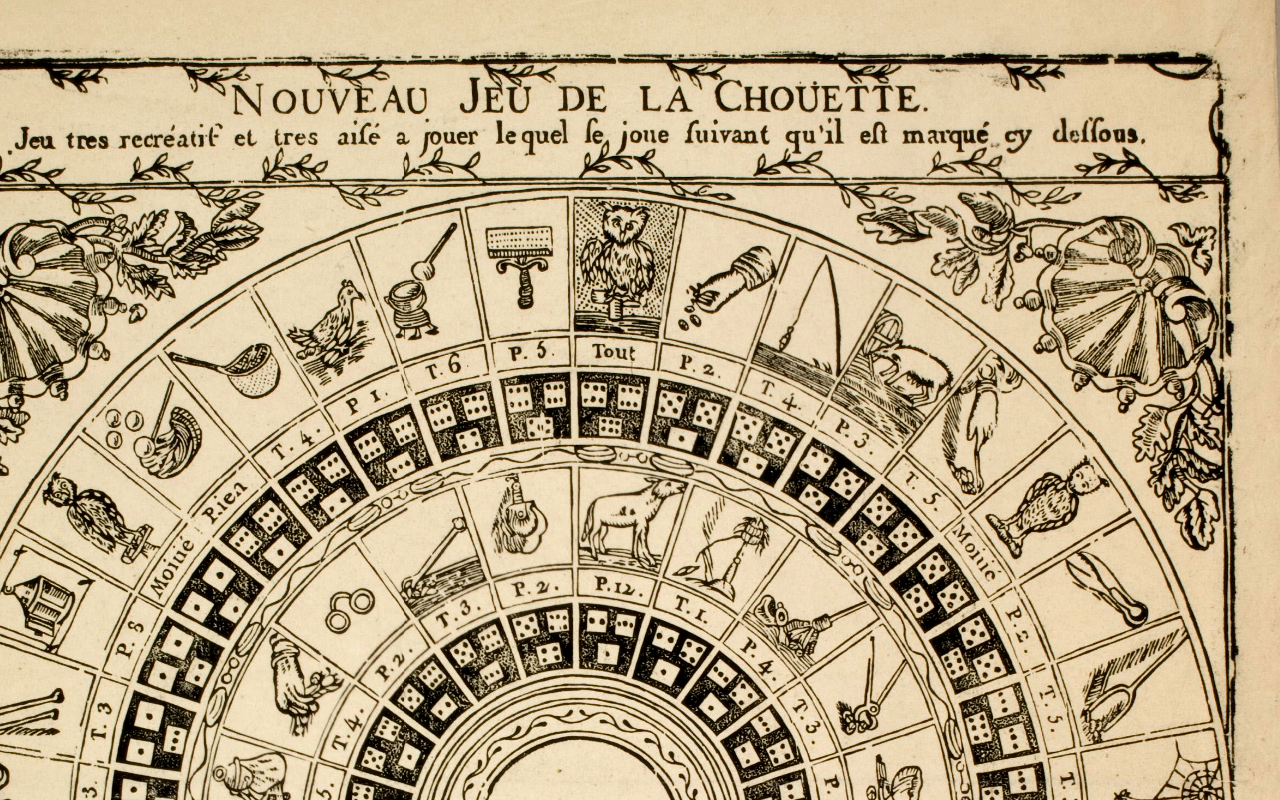 NOUVEAU JEU DE LA CHOÜETTE.
Jeu tres recréatif et tres aisé a jouer lequel se joue suivant qu'il est marqué cy dessous.
3.
T. 3
P. 8
Moitié
Rien
T. 4.
P 1.
T. 6
P. 5.
Tout
P. 2.
T. 4.
P. 3.
T. 5.
Moitié
P. 2.
T. 5.
T.
5.
T. 4.
P. 2.
T. 3
P. 2.
P. 12.
T. 1
P. 4.
T. 3
P.